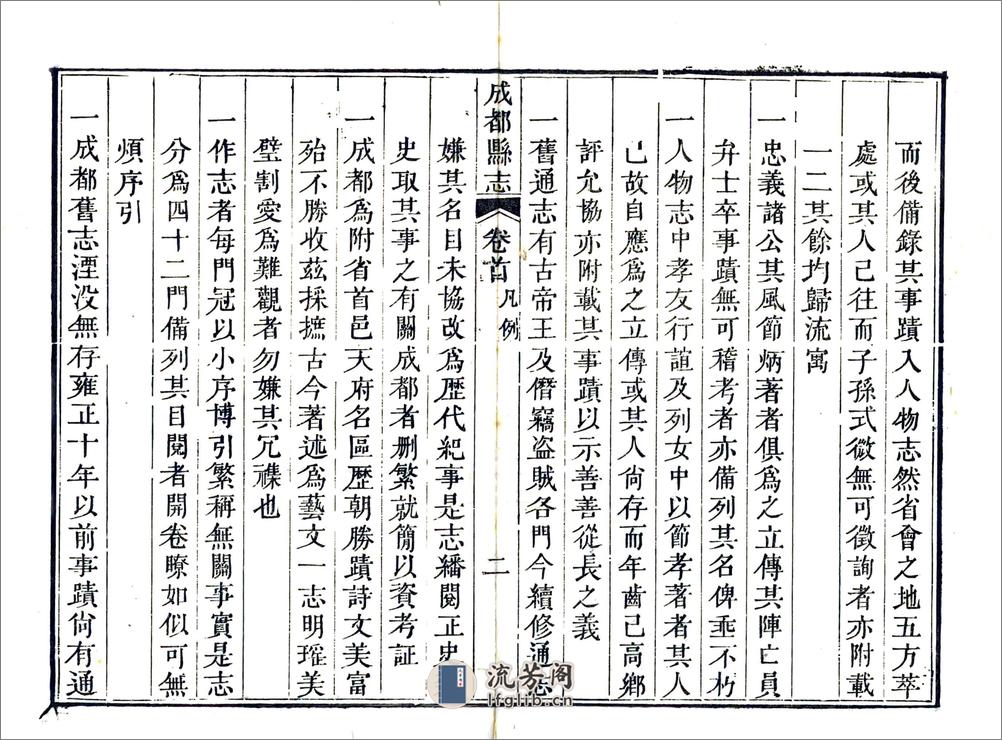 而後備錄其事蹟入人物志然省會之地五方萃
處或其人已往而子孫式微無可徵詢者亦附載
一二其餘均歸流寓
一忠義諸公其風節炳著者俱爲之立傳其陣亡員
弁士卒事蹟無可稽考者亦備列其名俾垂不朽
一人物志中孝友行誼及列女中以節孝著者其人
已故自應爲之立傳或其人尙存而年齒已高鄕
評允協亦附載其事蹟以示善善從長之義
一舊通志有古帝王及僭竊盜賊各門今續修通志
成都縣志 卷首 凡例 二
嫌其名目未協改爲歷代紀事是志繙閱正史
史取其事之有關成都者删繁就簡以資考証
一成都爲附省首邑天府名區歷朝勝蹟詩文美富
殆不勝收茲採摭古今著述爲藝文一志明璀美
璧割愛爲難觀者勿嫌其冗襍也
一作志者每門冠以小序博引繁稱無關事實是志
分爲四十二門備列其目閱者開卷瞭如似可無
煩序引
一成都舊志湮没無存雍正十年以前事蹟尙有通
流芳阁
lfglib.cn